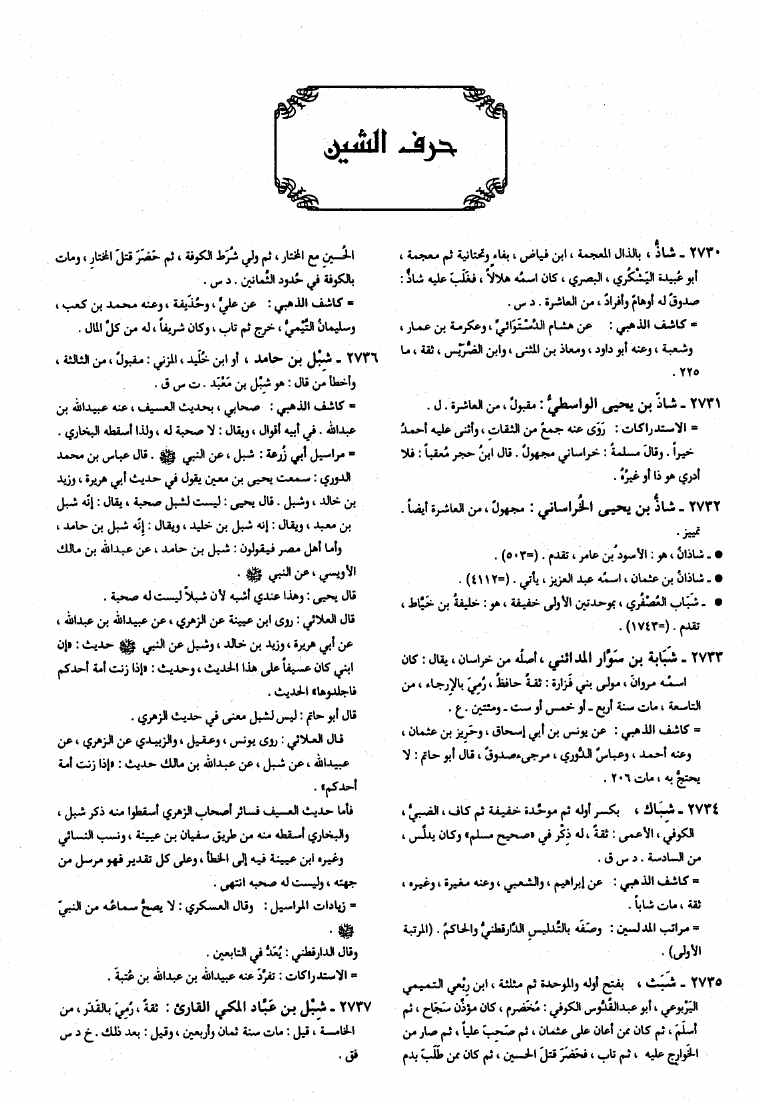 حرف الشين
٢٧٣٠ ـ شاذُّ ، بالذال المعجمة ، ابن فياض ، بفاء وتحتانية ثم معجمة ،
أبو عُبيدة اليَشْكُري ، البصري ، كان اسمُه هلالاً ، فغَلَبَ عليه شاذُّ :
صدوقٌ له أوهامٌ وأفرادٌ ، من العاشرة . د س .
= كاشف الذهبي : عن هشام الدَّسْتَوَائيِّ ، وعكرمة بن عمار ،
وشعبة ، وعنه أبو داود ، ومعاذ بن المثنى ، وابن الضُّرَيْس ، ثقة ، ما
٢٢٥ .
٢٧٣١ ـ شاذّ بن يحيى الواسطيُّ : مقبولٌ ، من العاشرة . ل .
= الاستدراكات : رَوَى عنه جمعٌ من الثقات ، وأثنى عليه أحمدُ
خيراً . وقالَ مسلمةُ : خراساني مجهولٌ . قال ابنُ حجر مُعقباً : فلا
أدري هو ذا أو غيرُهُ .
٢٧٣٢ ـ شاذُّ بن يحيى الخُراساني : مجهولٌ ، من العاشرة أيضاً .
تمييز .
● ـ شاذانُ ، هو : الأسودُ بن عامر ، تقدم . (=٥٠٣) .
● ـ شاذانُ بن عثمان ، اسمُه عبد العزيز ، يأتي . (=٤١١٢) .
● ـ شَبَاب العُصْفُري ، بموحدتين الأولى خفيفة ، هو : خليفةُ بن خَيَّاط ،
تقدم . (=١٧٤٣) .
٢٧٣٣ ـ شَبَابة بن سَوَّار المدائني ، أصلُه من خراسان ، يقال : كان
اسمُه مروانَ ، مولى بني فَزارة : ثقةٌ حافظٌ ، رُمِيَ بالإرجاء ، من
التاسعة ، مات سنة أربع ـ أو خمس أو ست ـ ومئتين . ع .
= كاشف الذهبي : عن يونس بن أبي إسحاق ، وحَرِيز بن عثمان ،
وعنه أحمد ، وعباسٌ الدُّوري ، مرجىء صدوقٌ ، قال أبو حاتم : لا
يحتجُّ به ، مات ٢٠٦ .
٢٧٣٤ ـ شِبَاك ، بكسر أوله ثم موحَّدة خفيفة ثم كاف ، الضبيُّ ،
الكوفي ، الأعمى : ثقةٌ ، له ذِكْر في «صحيح مسلم» وكان يدلِّس ،
من السادسة . د س ق .
= كاشف الذهبي : عن إبراهيم ، والشعبي ، وعنه مغيرة ، وغيره ،
ثقة ، مات شاباً .
= مراتب المدلسين : وصَفَه بالتَّدليس الدَّارقطنيُّ والحاكمُ . (المرتبة
الأولى) .
٢٧٣٥ ـ شَبَث ، بفتح أوله والموحدة ثم مثلثة ، ابن رِبْعي التميمي
اليَرْبوعي ، أبو عبدالقُدُّوس الكوفي : مُخضرم ، كان مؤذِّنَ سَجَاح ، ثم
أسلَمَ ، ثم كان ممن أعان على عثمان ، ثم صَحِبَ علياً ، ثم صار من
الخوارج عليه ، ثم تاب ، فحَضَرَ قتلَ الحسين ، ثم كان ممن طَلَبَ بدم
الحُسين مع المختار ، ثم ولي شُرَط الكوفة ، ثم حَضَرَ قتلَ المختارِ ، ومات
بالكوفة في حُدود الثَّمانين . د س .
= كاشف الذهبي : عن عليٍّ ، وحُذَيفة ، وعنه محمد بن كعب ،
وسليمانُ التَّيْميُّ ، خرج ثم تاب ، وكان شريفاً ، له من كلِّ المال .
٢٧٣٦ ـ شِبْل بن حامد ، أو ابن خُلَيد ، المزني : مقبولٌ ، من الثالثة ،
وأخطأ من قال : هو شِبْل بن مَعْبَد . ت س ق .
= كاشف الذهبي : صحابي ، بحديث العسيف ، عنه عبيدالله بن
عبدالله . في أبيه أقوال ، ويقال : لا صحبة له ، ولذا أسقطه البخاري .
= مراسيل أبي زُرعة : شبل ، عن النبي ﷺ . قال عباس بن محمد
الدوري : سمعت يحيى بن معين يقول في حديث أبي هريرة ، وزيد
بن خالد ، وشبل . قال يحيى : ليست لشبل صحبة ، يقال : إنَّه شبل
بن معبد ، ويقال : إنه شبل بن خليد ، ويقال : إنَّه شبل بن حامد ،
وأما أهل مصر فيقولون : شبل بن حامد ، عن عبدالله بن مالك
الأويسي ، عن النبي ﷺ .
قال يحيى : وهذا عندي أشبه لأن شبلاً ليست له صحبة .
قال العلائي : روى ابن عيينة عن الزهري ، عن عبيدالله بن عبدالله ،
عن أبي هريرة ، وزيد بن خالد ، وشبل عن النبي ﷺ حديث : «إن
ابني كان عسيفاً على هذا الحديث ، وحديث : «إذا زنت أمة أحدكم
فاجلدوها» الحديث .
قال أبو حاتم : ليس لشبل معنى في حديث الزهري .
قال العلائي : روى يونس ، وعقيل ، والزبيدي عن الزهري ، عن
عبيدالله ، عن شبل ، عن عبدالله بن مالك حديث : «إذا زنت أمة
أحدكم» .
فأما حديث العسيف فسائر أصحاب الزهري أسقطوا منه ذكر شبل ،
والبخاري أسقطه منه من طريق سفيان بن عيينة ، ونسب النسائي
وغيره ابن عيينة فيه إلى الخطأ ، وعلى كل تقدير فهو مرسل من
جهته ، وليست له صحبه انتهى .
= زيادات المراسيل : وقال العسكري : لا يصحُّ سماعُه من النبيِّ
ﷺ .
وقال الدارقطني : يُعَدُّ في التابعين .
= الاستدراكات : تفرَّدَ عنه عبيدالله بن عبدالله بن عُتبةَ .
٢٧٣٧ ـ شِبْل بن عَبَّاد المكي القارئ : ثقةٌ ، رُمِيَ بالقَدَر ، من
الخامسة ، قيل : مات سنة ثمان وأربعين ، وقيل : بعد ذلك . خ د س
فق .